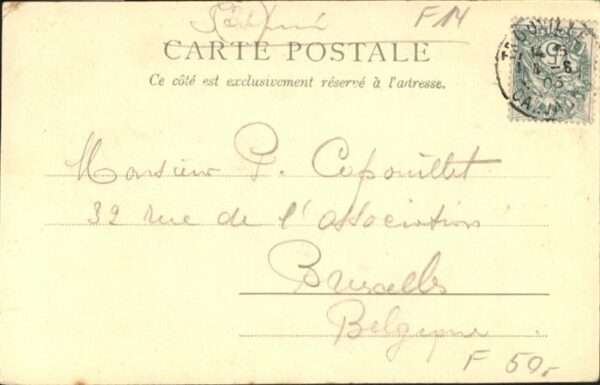 F 14
CARTE POSTALE
Ce côté est exclusivement réservé à l'adresse.
Monsieur P. Capouillet
32 rue de l'association
Bruxelles
Belgique
F 50,